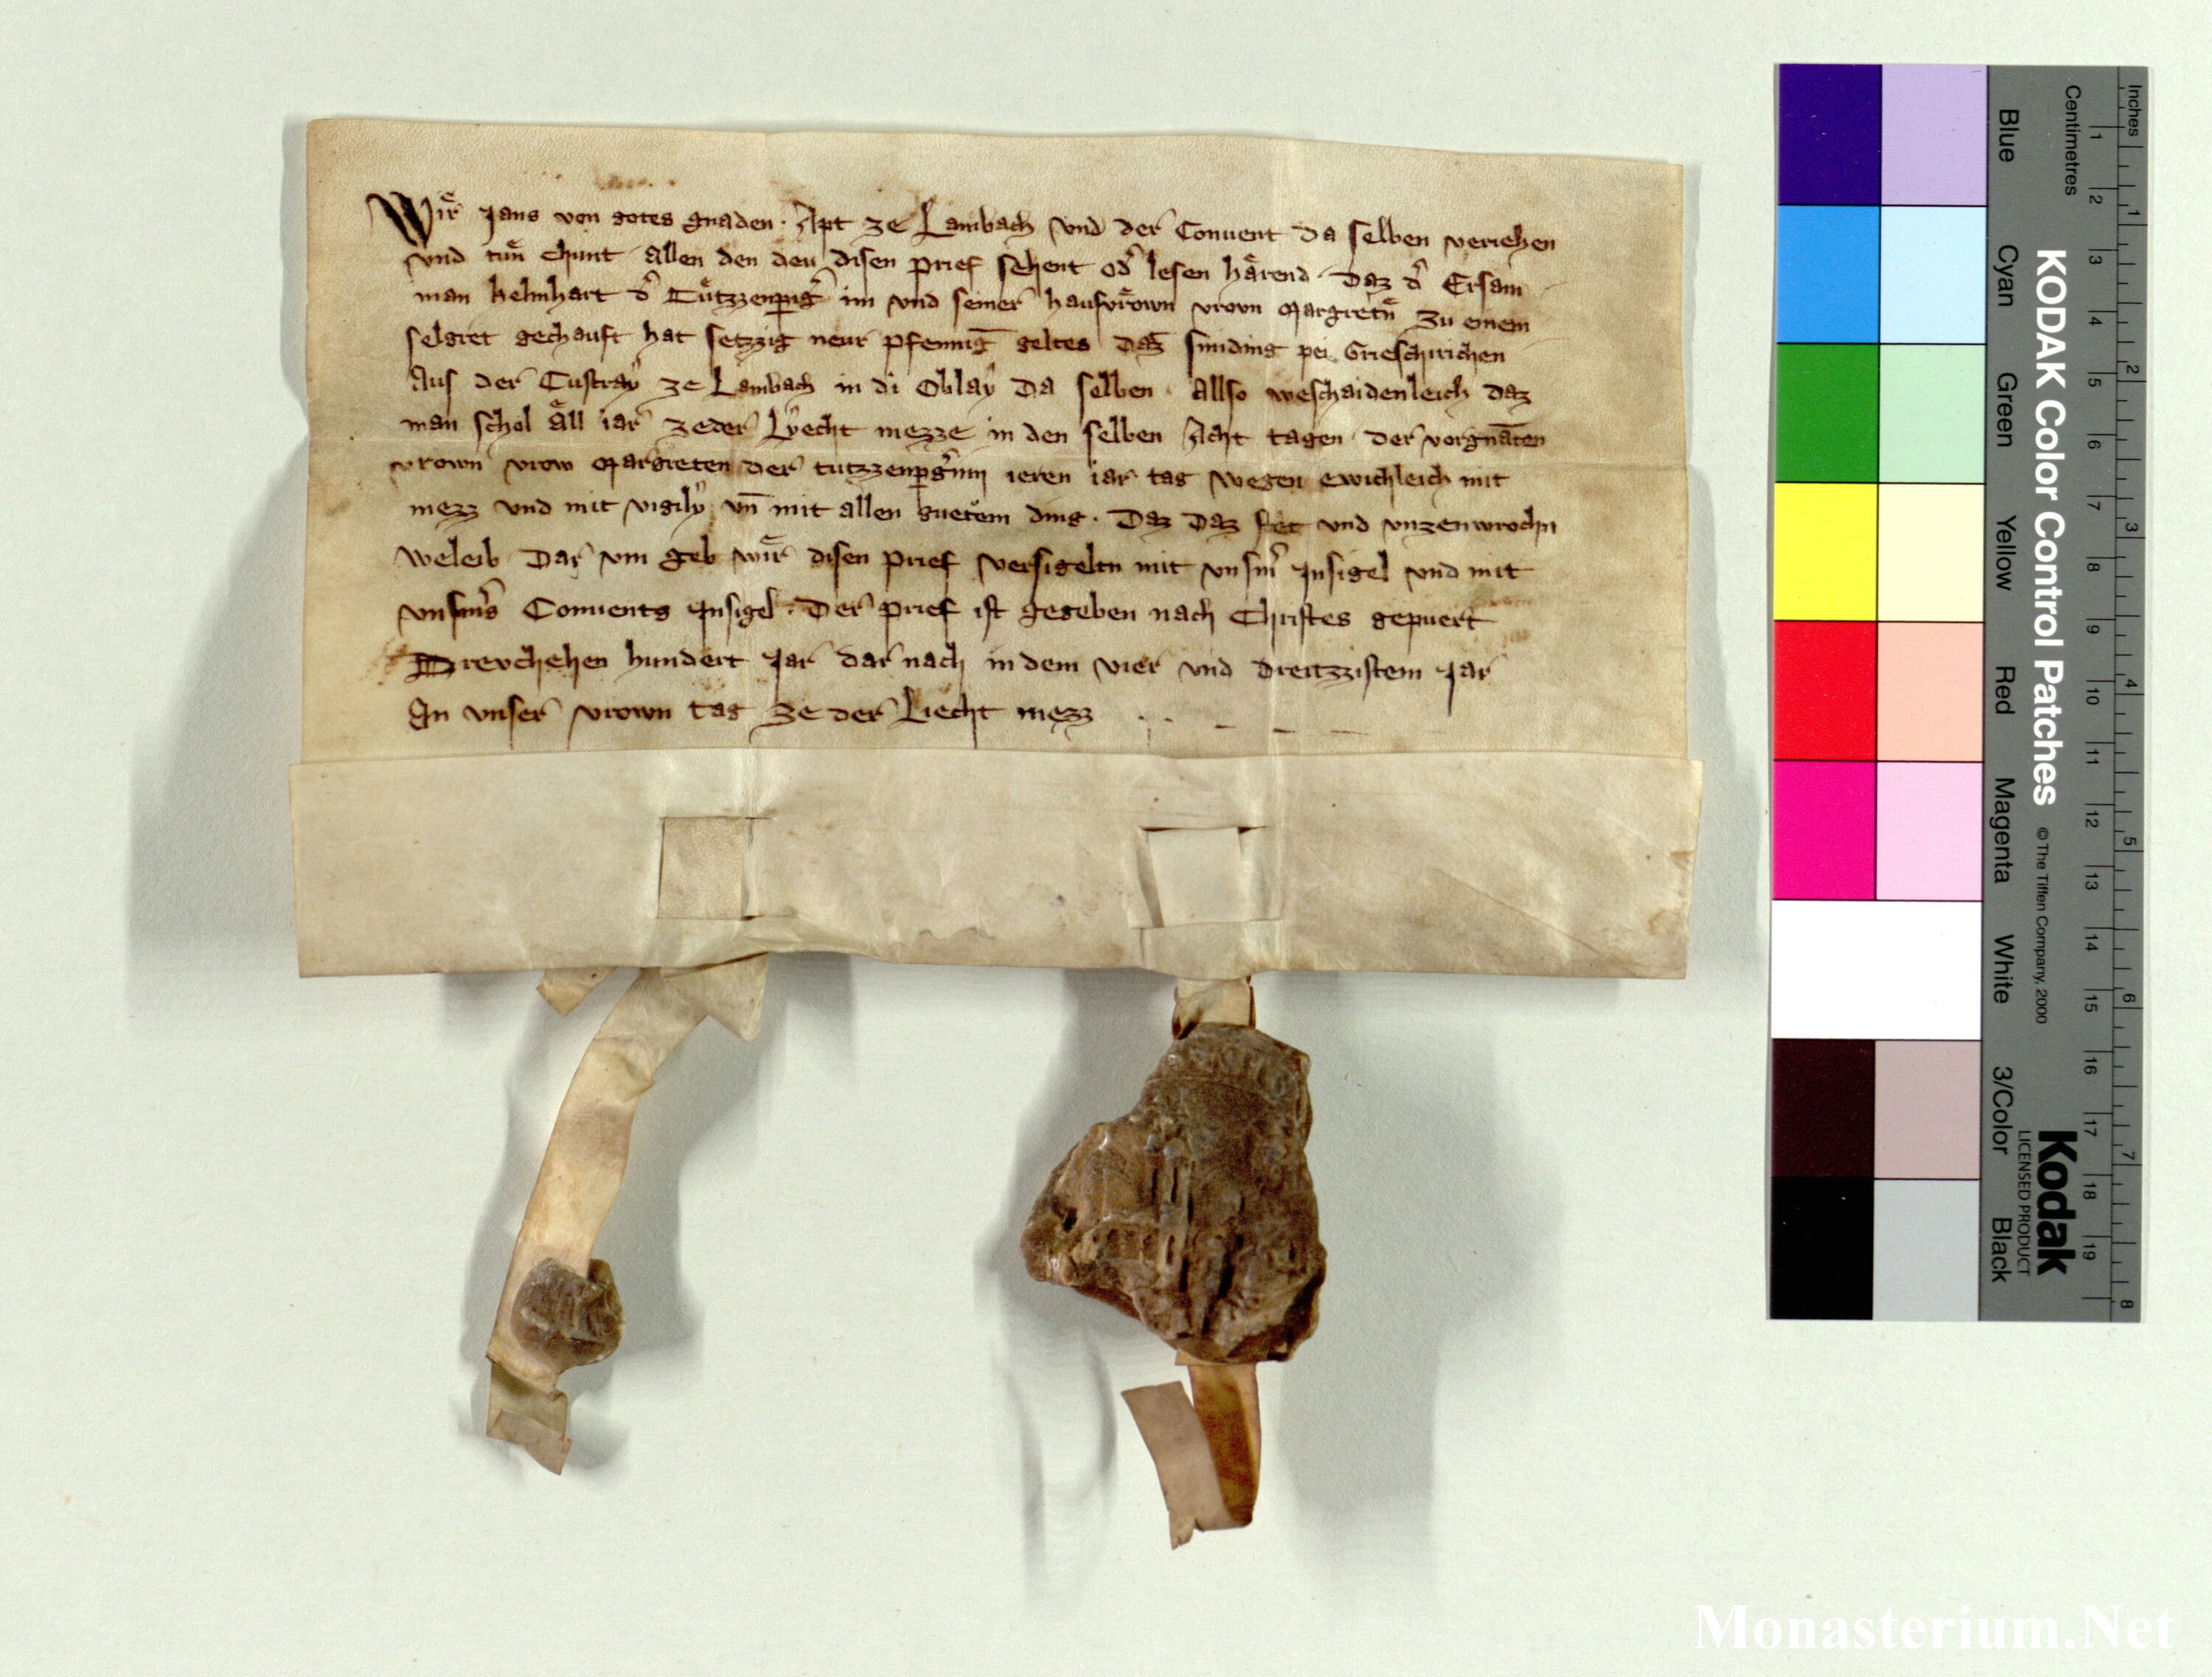 Wiͤr Jans von gotes gnaden · Apt ze Lambach vnd der Conuent da selben veriehen
vnd tuͤn chunt allen den deu disen prief sehent od̛ lesen haͤrend · Daz d̛ Ersam
man helmhart d̛ Tuͤtzzenpͥg̛ im vnd seiner hausvroͤwn vrown Margretn̄ zu einem
selgret gechauft hat setzzig neur pfennig̅ geltes daz̄ sinding pei Grieschirichen
Aus der Custraẙ ze Lambach in di Oblaẙ da selben · allso weschaidenleich daz
man schol aͤll iar zeder Lẙecht mezze in den selben Acht tagen der vorgnāten
vrown vrow Margreten der tutzzenpg̛inn ieren iar tag wegen ewichleich mit
mezz vnd mit vigilẙ vn̄ mit allen guetem ding · Daz Daz stet vnd vnzenwrochn
weleib Dar vm geb wiͤr disen prief versigeltn mit vnsm̛ Insigel vnd mit
vnsm̛s Conuents Insigel · Der prief ist gegeben nach Christes gepuert
Drevchehen hundert Jar dar nach in dem vier vnd dreitzzistem Jar
An vnser vrown tag ze der Liecht mezz
KODAK Color Control Patches
© The Tiffen Company, 2000
Kodak
LICENSED PRODUCT
Blue
Cyan
Green
Yellow
Red
Magenta
White
3/Color
Black
Centimetres
1 2 3 4 5 6 7 8 9 10 11 12 13 14 15 16 17 18 19
Inches
1 2 3 4 5 6 7 8
Monasterium.Net